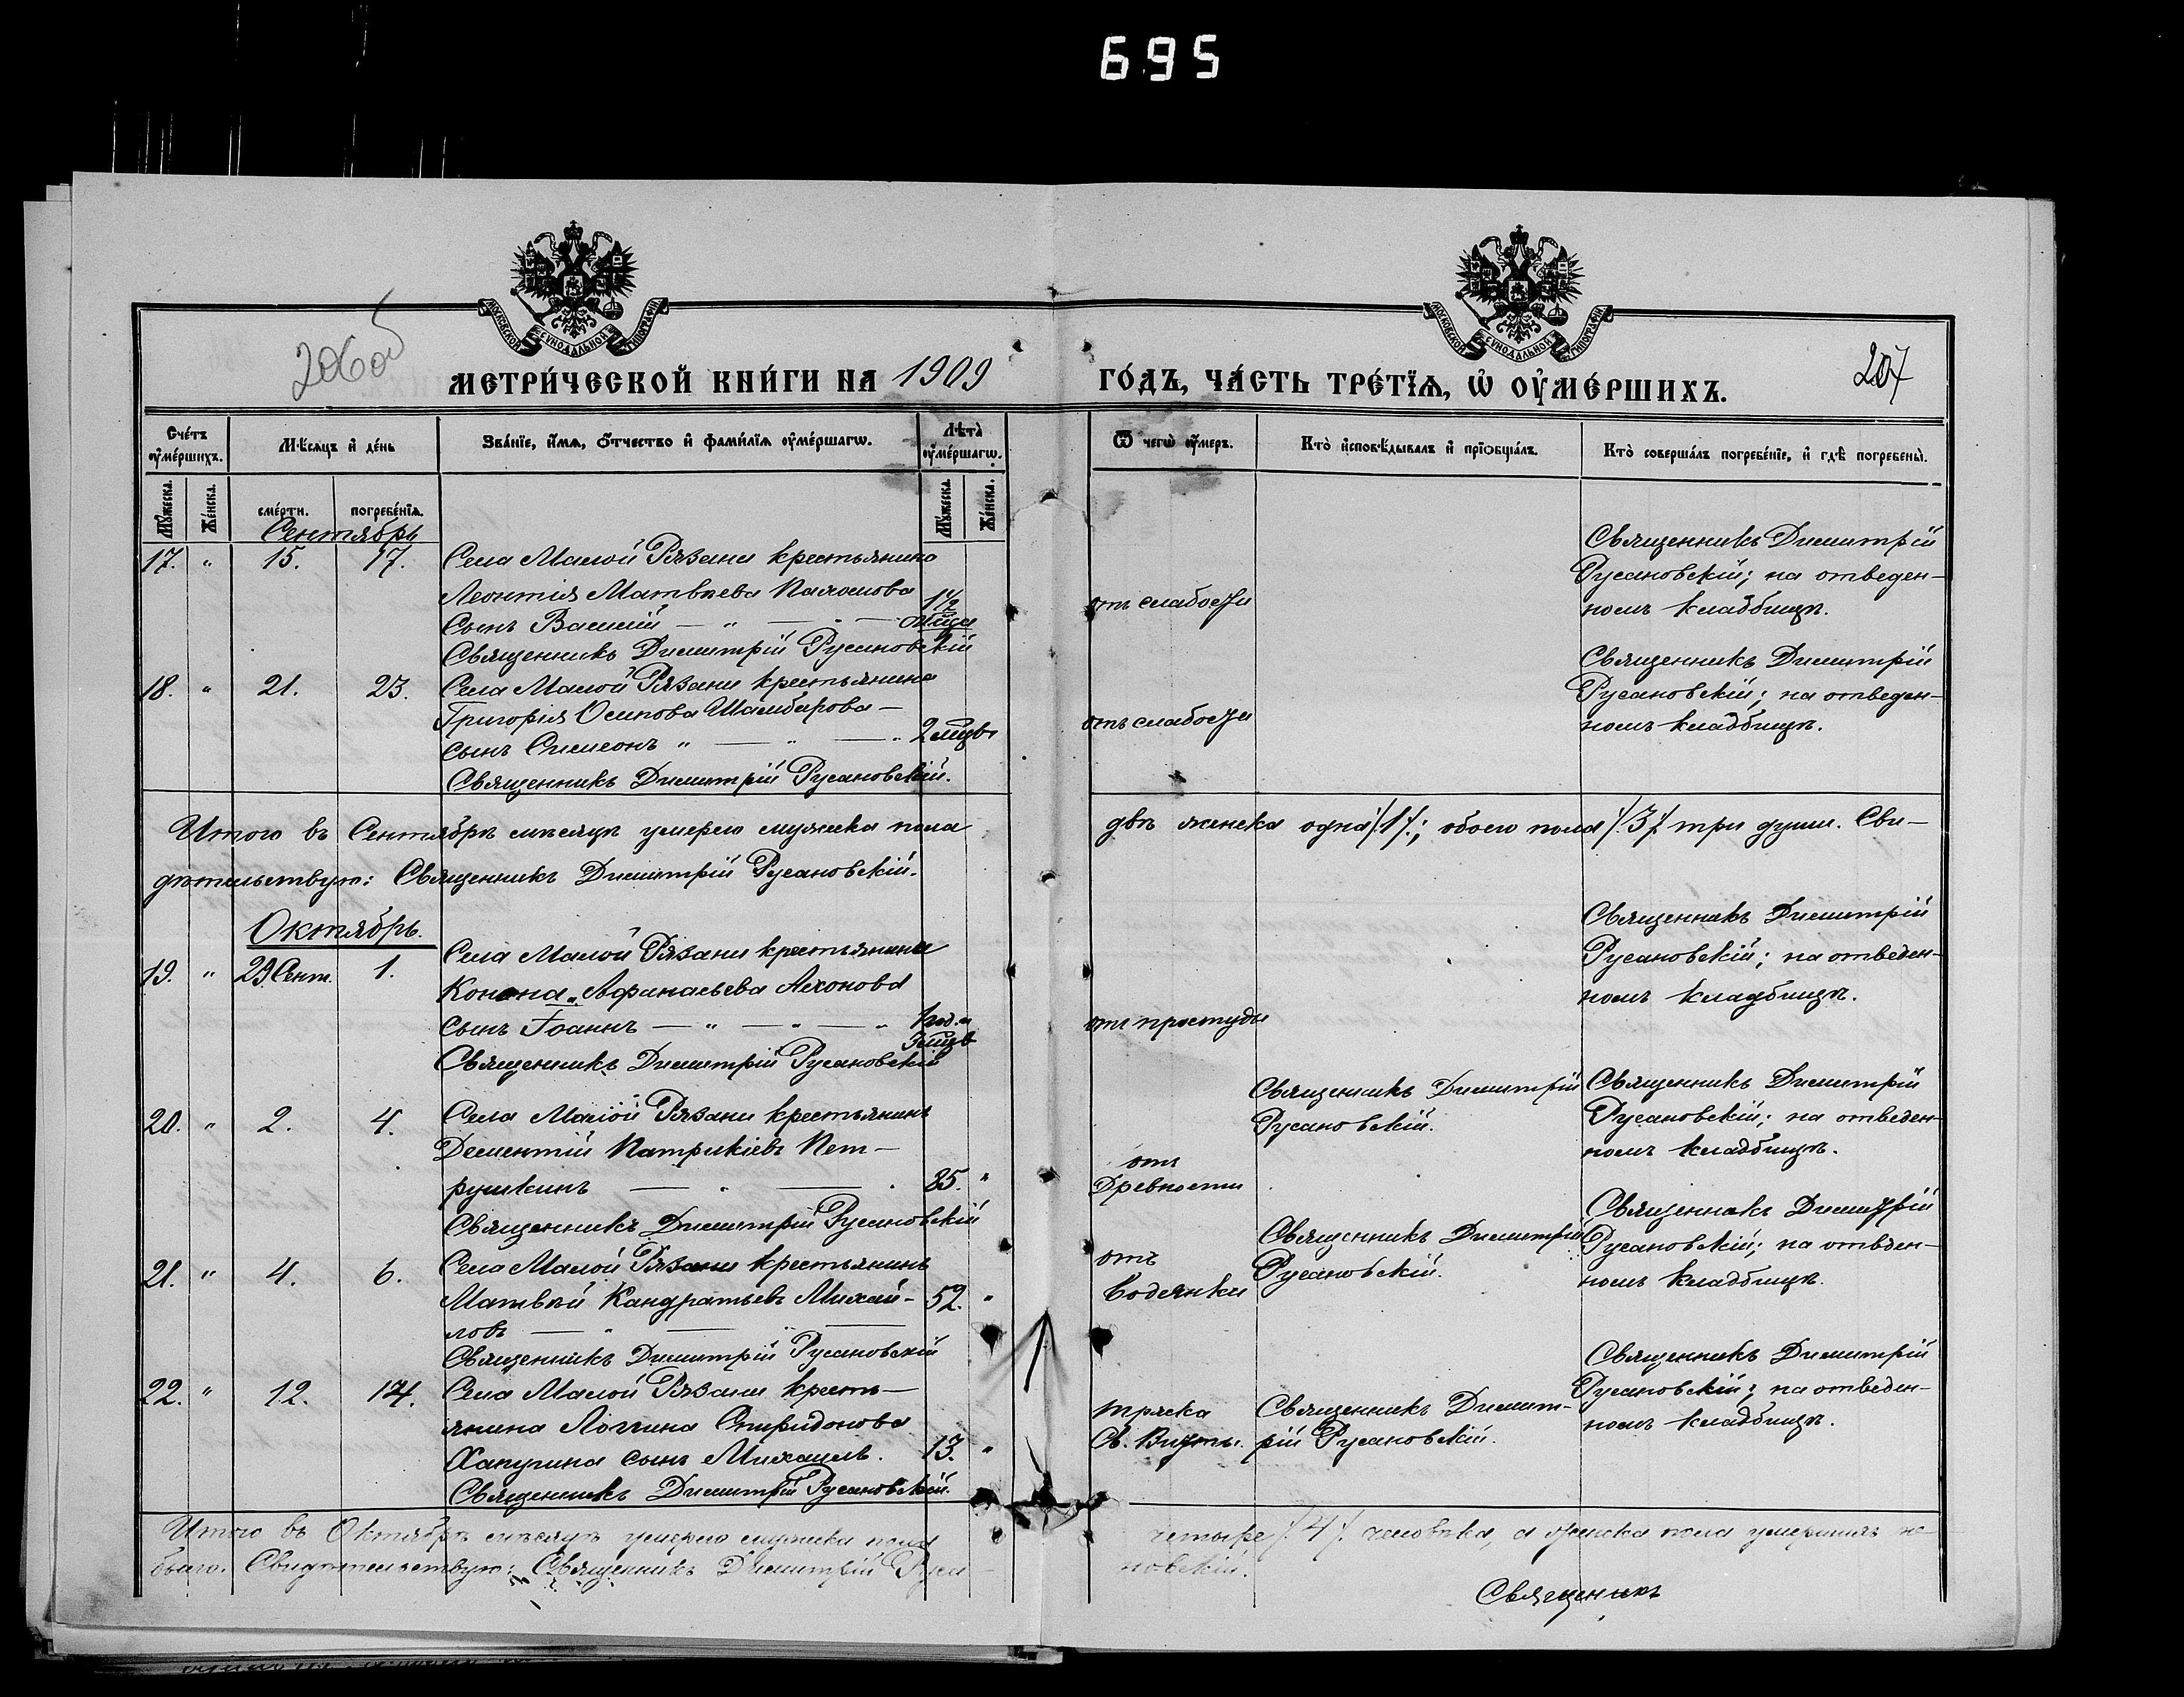 695
МОСКОВСКОЙ СѴНОДАЛЬНОЙ ТИПОГРАФІИ
МОСКОВСКОЙ СѴНОДАЛЬНОЙ ТИПОГРАФІИ
206об
207
МЕТРИ́ЧЕСКОЙ КНИ́ГИ НА 1909 ГО́ДЪ, ЧА́СТЬ ТРЕ́ТЇѦ, Ѡ҆ ОУ҆МЕ́РШИХЪ.
Сче́тъ оу҆ме́ршихъ.
Мѣ́сяцъ и҆ де́нь
Зва́нїе, и҆́мѧ, ѻ҆́тчество и҆ фами́лїѧ оу҆ме́ршагѡ.
Лѣта̀ оу҆ме́ршагѡ.
Ѿ чегѡ̀ оу҆́меръ.
Кто̀ и҆сповѣ́дывалъ и҆ прїѡбща́лъ.
Кто̀ соверша́лъ погребе́нїе, и҆ гдѣ̀ погребены̀.
Му́жеска.
Же́нска.
сме́рти.
погребе́нїѧ.
Му́жеска.
Же́нска.
Сентябрь
17. " 15. 17. Села Малой Рязани крестьянина
Леонтія Матвѣева
Сынъ Василій — " — " — 1 1/2 мѣца
Священникъ Димитрій Русановскій
отъ слабости
Священникъ Димитрій
Русановскій; на отведен-
номъ кладбищѣ.
18. " 21. 23. Села Малой Рязани крестьянина
Григорія Осипова Шамбарова —
сынъ Симеонъ " — " — " 2 мѣцвъ
Священникъ Димитрій Русановскій.
отъ слабости
Священникъ Димитрій
Русановскій; на отведен-
номъ кладбищѣ.
Итого въ Сентябрѣ мѣсяцѣ умерло мужска пола двѣ женска одна /.1/.; обоего пола /.3/. три души. Сви-
дѣтельствую: Священникъ Димитрій Русановскій.
Октябрь.
19. " 29 Сент. 1. Села Малой Рязани крестьянина
Конона Афанасьева Лехонова
сынъ Іоаннъ — " — " — " 1 год. и
3 мѣцв
Священникъ Димитрій Русановскій
отъ простуды
Священникъ Димитрій
Русановскій; на отведен-
номъ кладбищѣ.
20. " 2. 4. Села Малой Рязани крестьянинъ
Дементій Патрикіевъ Пет-
рушкинъ — " — " 85. "
Священникъ Димитрій Русановскій
отъ
Древности
Священникъ Димитрій
Русановскій.
Священникъ Димитрій
Русановскій; на отведен-
номъ кладбищѣ.
21. " 4. 6. Села Малой Рязани крестьянинъ
Матвѣй Кандратьевъ Михай- 52. "
ловъ — " — " —
Священникъ Димитрій Русановскій
отъ
водянки
Священникъ Димитрій
Русановскій.
Священникъ Димитрій
Русановскій; на отвден-
номъ кладбищѣ.
22. " 12. 14. Села Малой Рязани кресть-
янина Логгина Спиридонова
Хапугина сынъ Михаилъ. 13. "
Священникъ Димитрій Русановскій.
тряска
Св. Витты.
Священникъ Димит-
рій Русановскій.
Священникъ Димитрій
Русановскій; на отведен-
номъ кладбищѣ.
Итого въ Октябрѣ мѣсяцѣ умерло мужска пола четыре /.4/. человѣка, а женска пола умершихъ не
было. Свидѣтельствую: Священникъ Димитрій Руса-новскій.
Священникъ